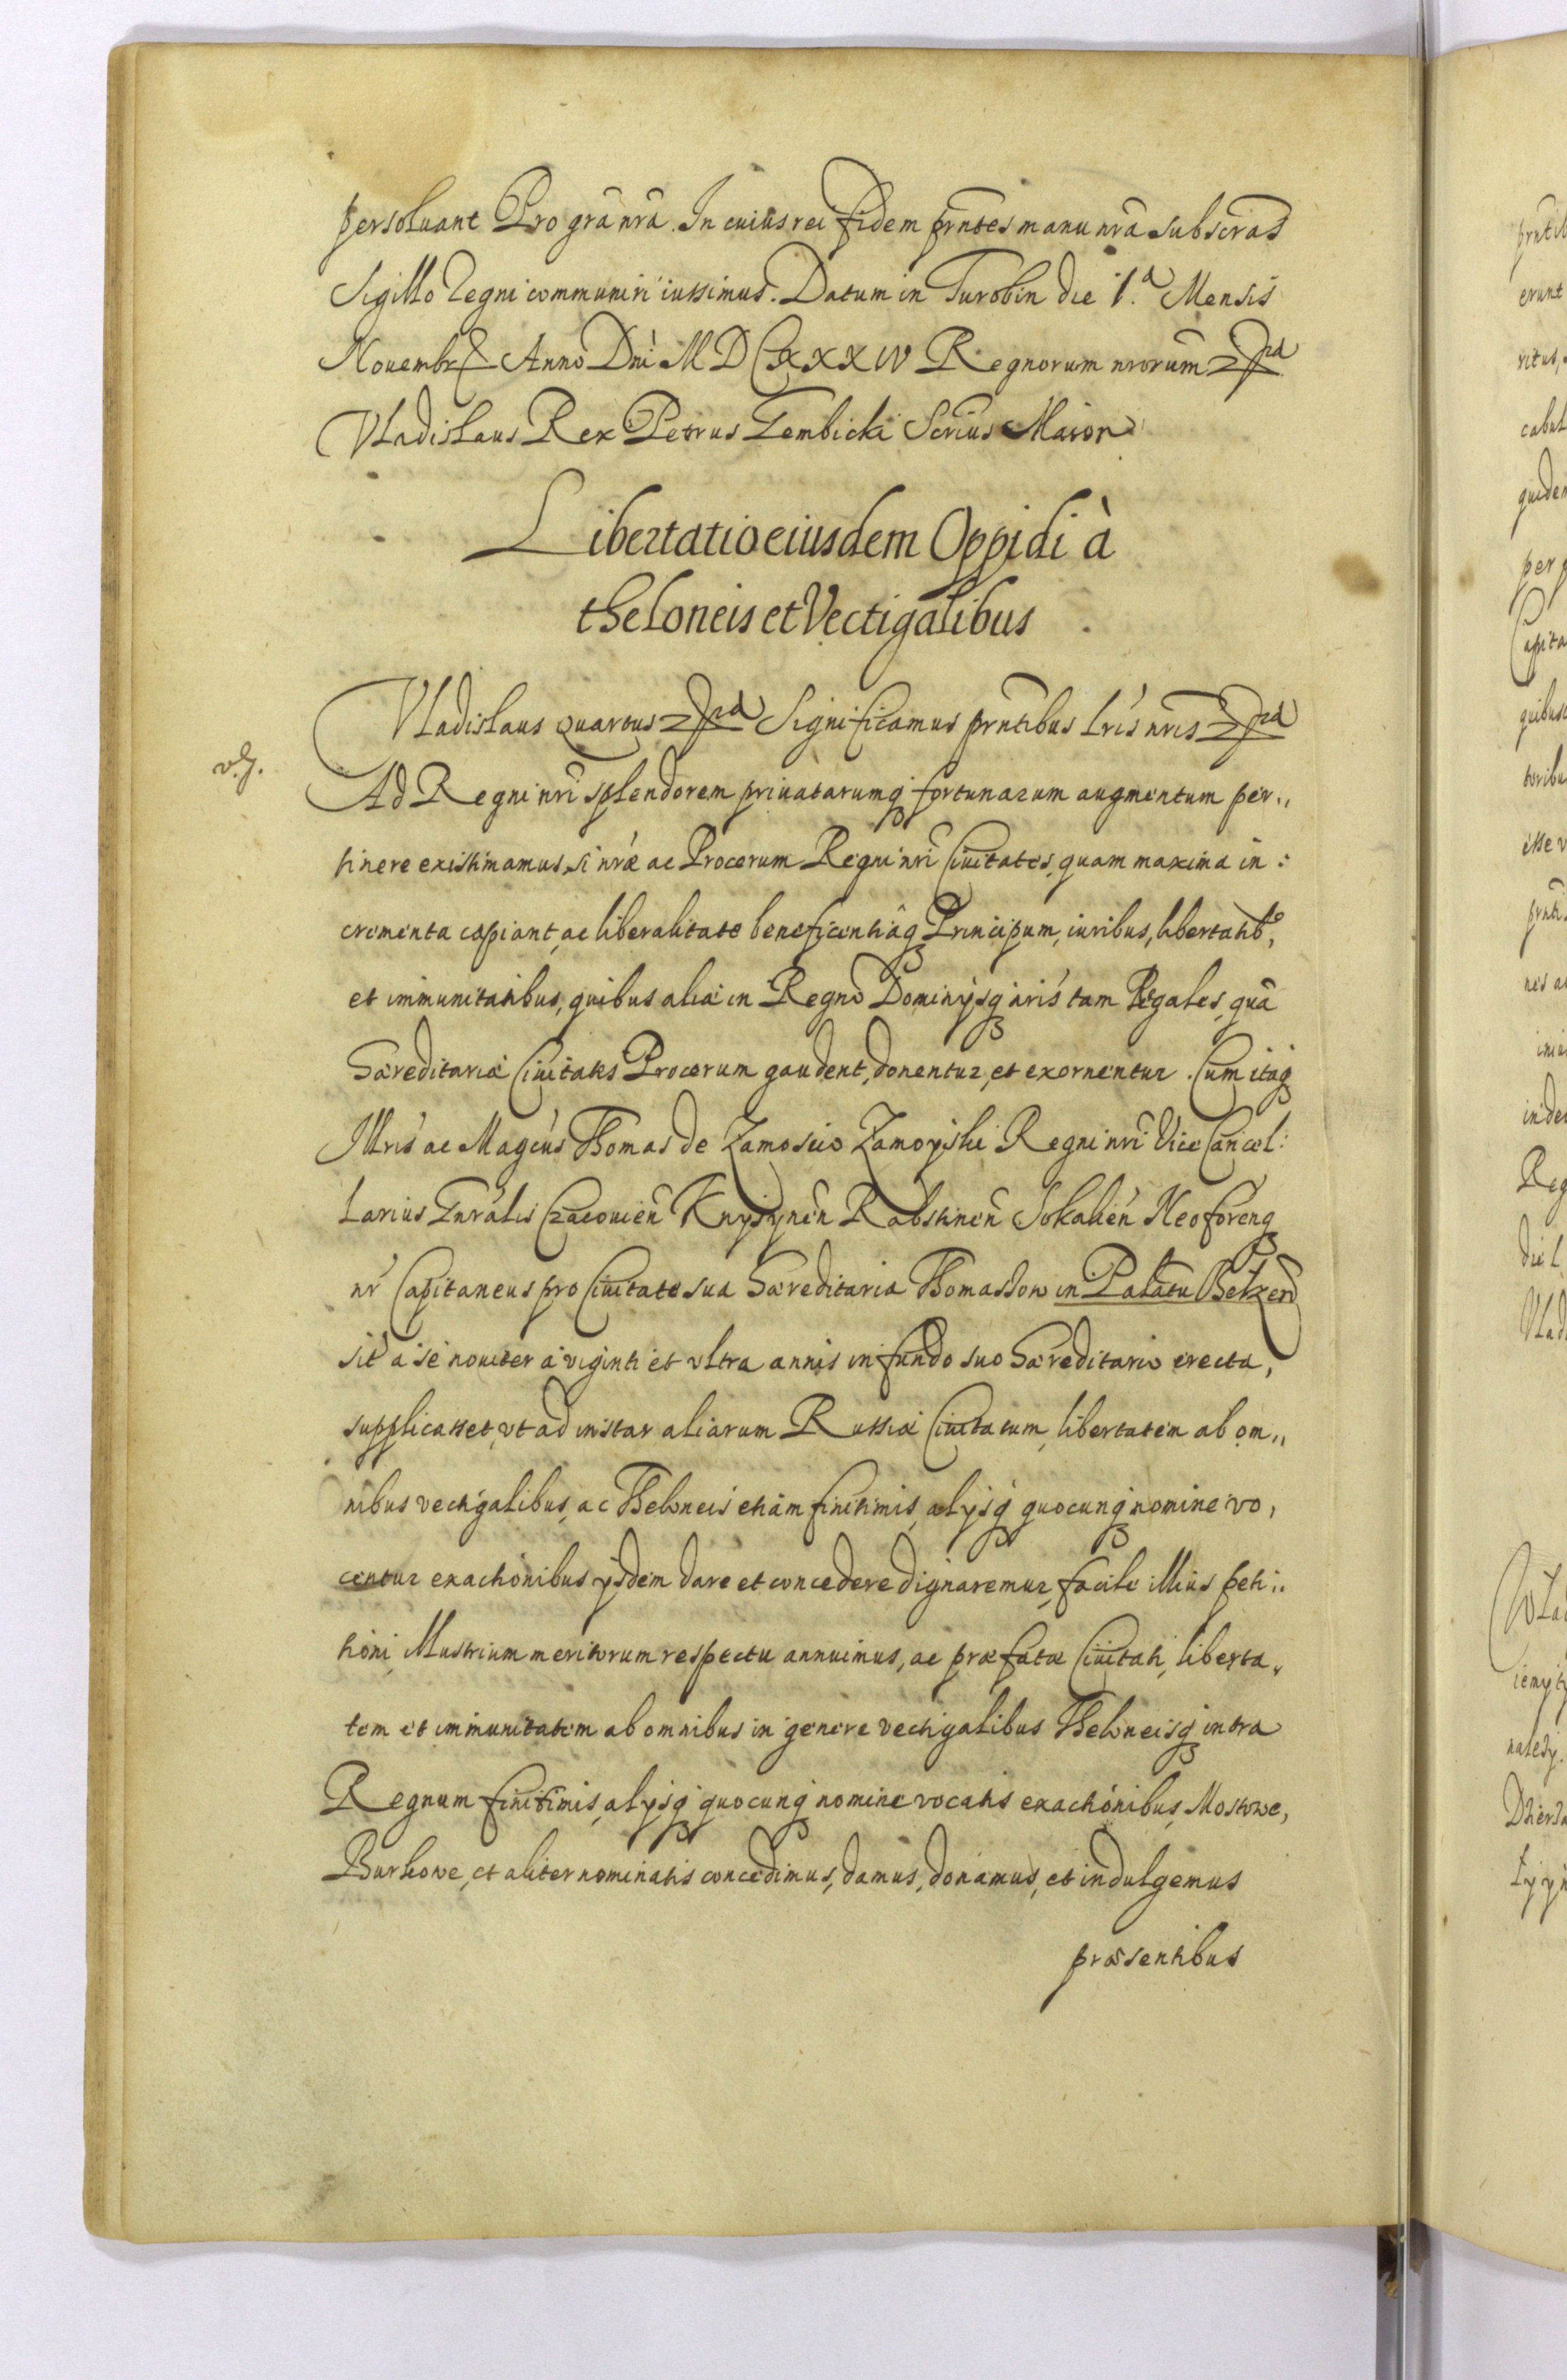 persoluant Pro grã nrã. In cuius rei fidem prntes manu nrã subscras
Sigillo Regni communiri iussimus. Datum in Turobin die 1.a Mensis
Nouembr Anno Dni MDCXXXIV Regnorum nrorum
Vladislaus Rex Petrus Gembicki Scrius Maior
Libertatio eiusdem Oppidi à
theloneis et Vectigalibus
Vladislaus Quartus Significamus prntibus lris nris
Ad Regni nri splendorem priuatarumq fortunarum augmentum per„
tinere existimamus, si nræ ac Procerum Regni nri Ciuitates, quam maxima in:
crementa capiant, ac liberalitate beneficentiâq Principum, iuribus, libertatib,
et immunitatibus, quibus aliæ in Regno Dominijsq nris tam Regales, quã
Hæreditariæ Ciuitates Procerum gaudent, donentur, et exornentur. Cum itaq
Illris ac Magcus Thomas de Zamoscio Zamoyski Regni nri Vice Cancel:
larius Gnralis Cracouien Knyszynen Rabstinen Sokalien Neoforenq
nr Capitaneus pro Ciuitate sua Hæreditaria Thomassow in Palatu Belzen
sit a se nouiter a viginti et vltra annis in fundo suo Hæreditario erecta,
supplicasset, vt ad instar aliarum Russiæ Ciuitatum, libertatem ab om„
nibus vectigalibus, ac Theloneis etiam finitimis, alijsq quocunq nomine vo,
centur exactionibus ijsdem dare et concedere dignaremur, facile illius peti„
tioni Illustrium meritorum respectu annuimus, ac præfatæ Ciuitati, liberta„
tem et immunitatem ab omnibus in genere vectigalibus Theloneisq intra
Regnum finitimis, alijsq quocunq nomine vocatis exactionibus, Mostowe,
Burkowe, et aliter nominatis concedimus, damus, donamus, et indulgemus
præsentibus